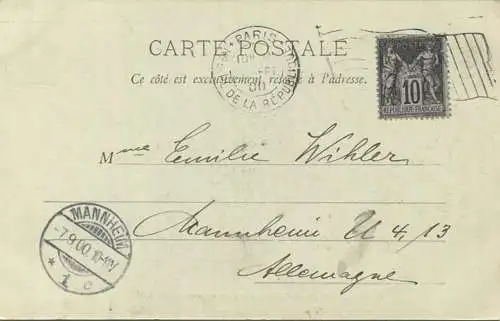 CARTE POSTALE
Ce côté est exclusivement réservé à l'adresse.
PARIS
DE LA RÉPUBLIQUE
00
10
RÉPUBLIQUE FRANÇAISE
Mme Emilie Wihler
Mannheim U 4, 13
Allemagne
MANNHEIM
-7.9.00. 10-11V
* 1 c